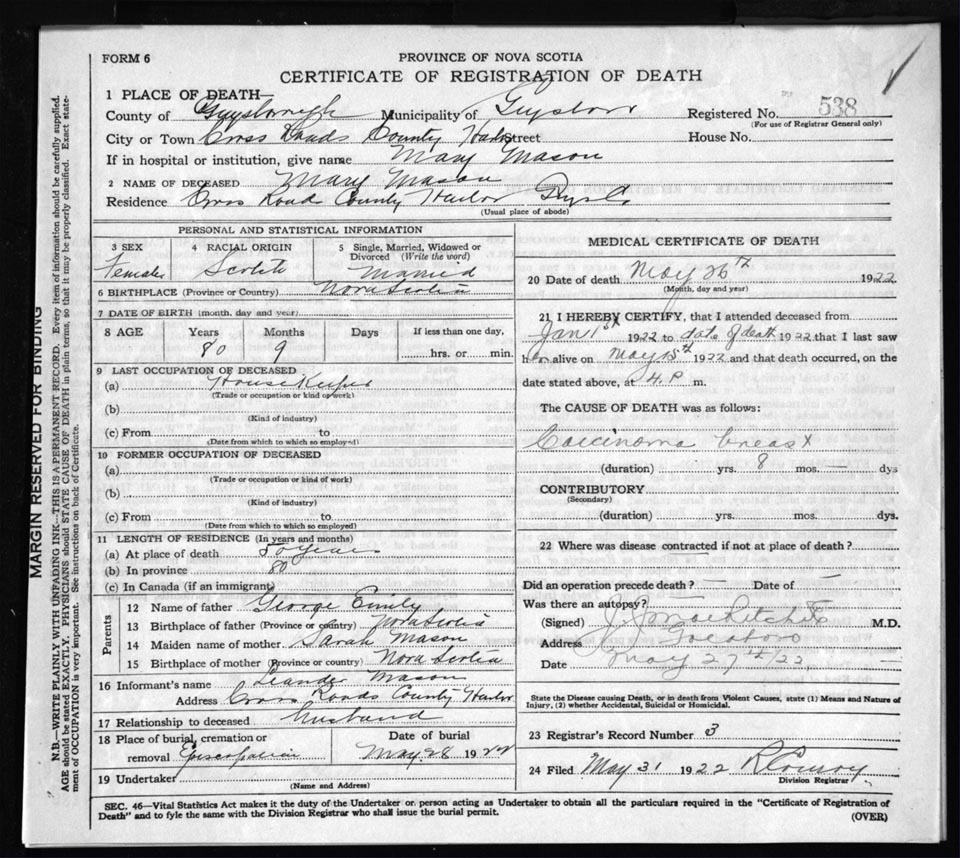 FORM 6
PROVINCE OF NOVA SCOTIA
CERTIFICATE OF REGISTRATION OF DEATH
1 PLACE OF DEATH—
County of Guysborough Municipality of Guysboro Registered No. 538
(For use of Registrar General only)
City or Town Cross Roads County Harbor Street House No.
If in hospital or institution, give name Mary Mason
2 NAME OF DECEASED Mary Mason
Residence Cross Roads County Harbor Guys Co.
(Usual place of abode)
PERSONAL AND STATISTICAL INFORMATION
3 SEX 4 RACIAL ORIGIN 5 Single, Married, Widowed or Divorced (Write the word)
Female Scotch Married
6 BIRTHPLACE (Province or Country) Nova Scotia
7 DATE OF BIRTH (month, day and year)
8 AGE Years Months Days If less than one day,
80 9 hrs. or min.
9 LAST OCCUPATION OF DECEASED
(a) House Keeper
(Trade or occupation or kind of work)
(b)
(Kind of industry)
(c) From to
(Date from which to which so employed)
10 FORMER OCCUPATION OF DECEASED
(a)
(Trade or occupation or kind of work)
(b)
(Kind of industry)
(c) From to
(Date from which to which so employed)
11 LENGTH OF RESIDENCE (In years and months)
(a) At place of death 50 Years
(b) In province 80
(c) In Canada (if an immigrant)
Parents
12 Name of father George Emily
13 Birthplace of father (Province or country) Nova Scotia
14 Maiden name of mother Sarah Mason
15 Birthplace of mother (Province or country) Nova Scotia
16 Informant's name Leander Mason
Address Cross Roads County Harbor
17 Relationship to deceased Husband
18 Place of burial, cremation or removal Episcopalian Date of burial May 28 1922
19 Undertaker
(Name and Address)
MEDICAL CERTIFICATE OF DEATH
20 Date of death May 26th 1922
(Month, day and year)
21 I HEREBY CERTIFY, that I attended deceased from
Jan 1st 1922 to date of death 1922 that I last saw
her alive on May 15th 1922 and that death occurred, on the
date stated above, at 4. P m.
The CAUSE OF DEATH was as follows:
Carcinoma breast
(duration) yrs. 8 mos. — dys
CONTRIBUTORY
(Secondary)
(duration) yrs. mos. dys.
22 Where was disease contracted if not at place of death?
Did an operation precede death? — Date of —
Was there an autopsy?
(Signed) M.D.
Address
Date May 27th/22
State the Disease causing Death, or in death from Violent Causes, state (1) Means and Nature of
Injury, (2) whether Accidental, Suicidal or Homicidal.
23 Registrar's Record Number 3
24 Filed May 31 1922
Division Registrar
SEC. 46—Vital Statistics Act makes it the duty of the Undertaker or person acting as Undertaker to obtain all the particulars required in the "Certificate of Registration of
Death" and to fyle the same with the Division Registrar who shall issue the burial permit. (OVER)
MARGIN RESERVED FOR BINDING
N.B.—WRITE PLAINLY WITH UNFADING INK—THIS IS A PERMANENT RECORD. Every item of information should be carefully supplied.
AGE should be stated EXACTLY. PHYSICIANS should STATE CAUSE OF DEATH in plain terms, so that it may be properly classified. Exact state-
ment of OCCUPATION is very important. See instructions on back of Certificate.